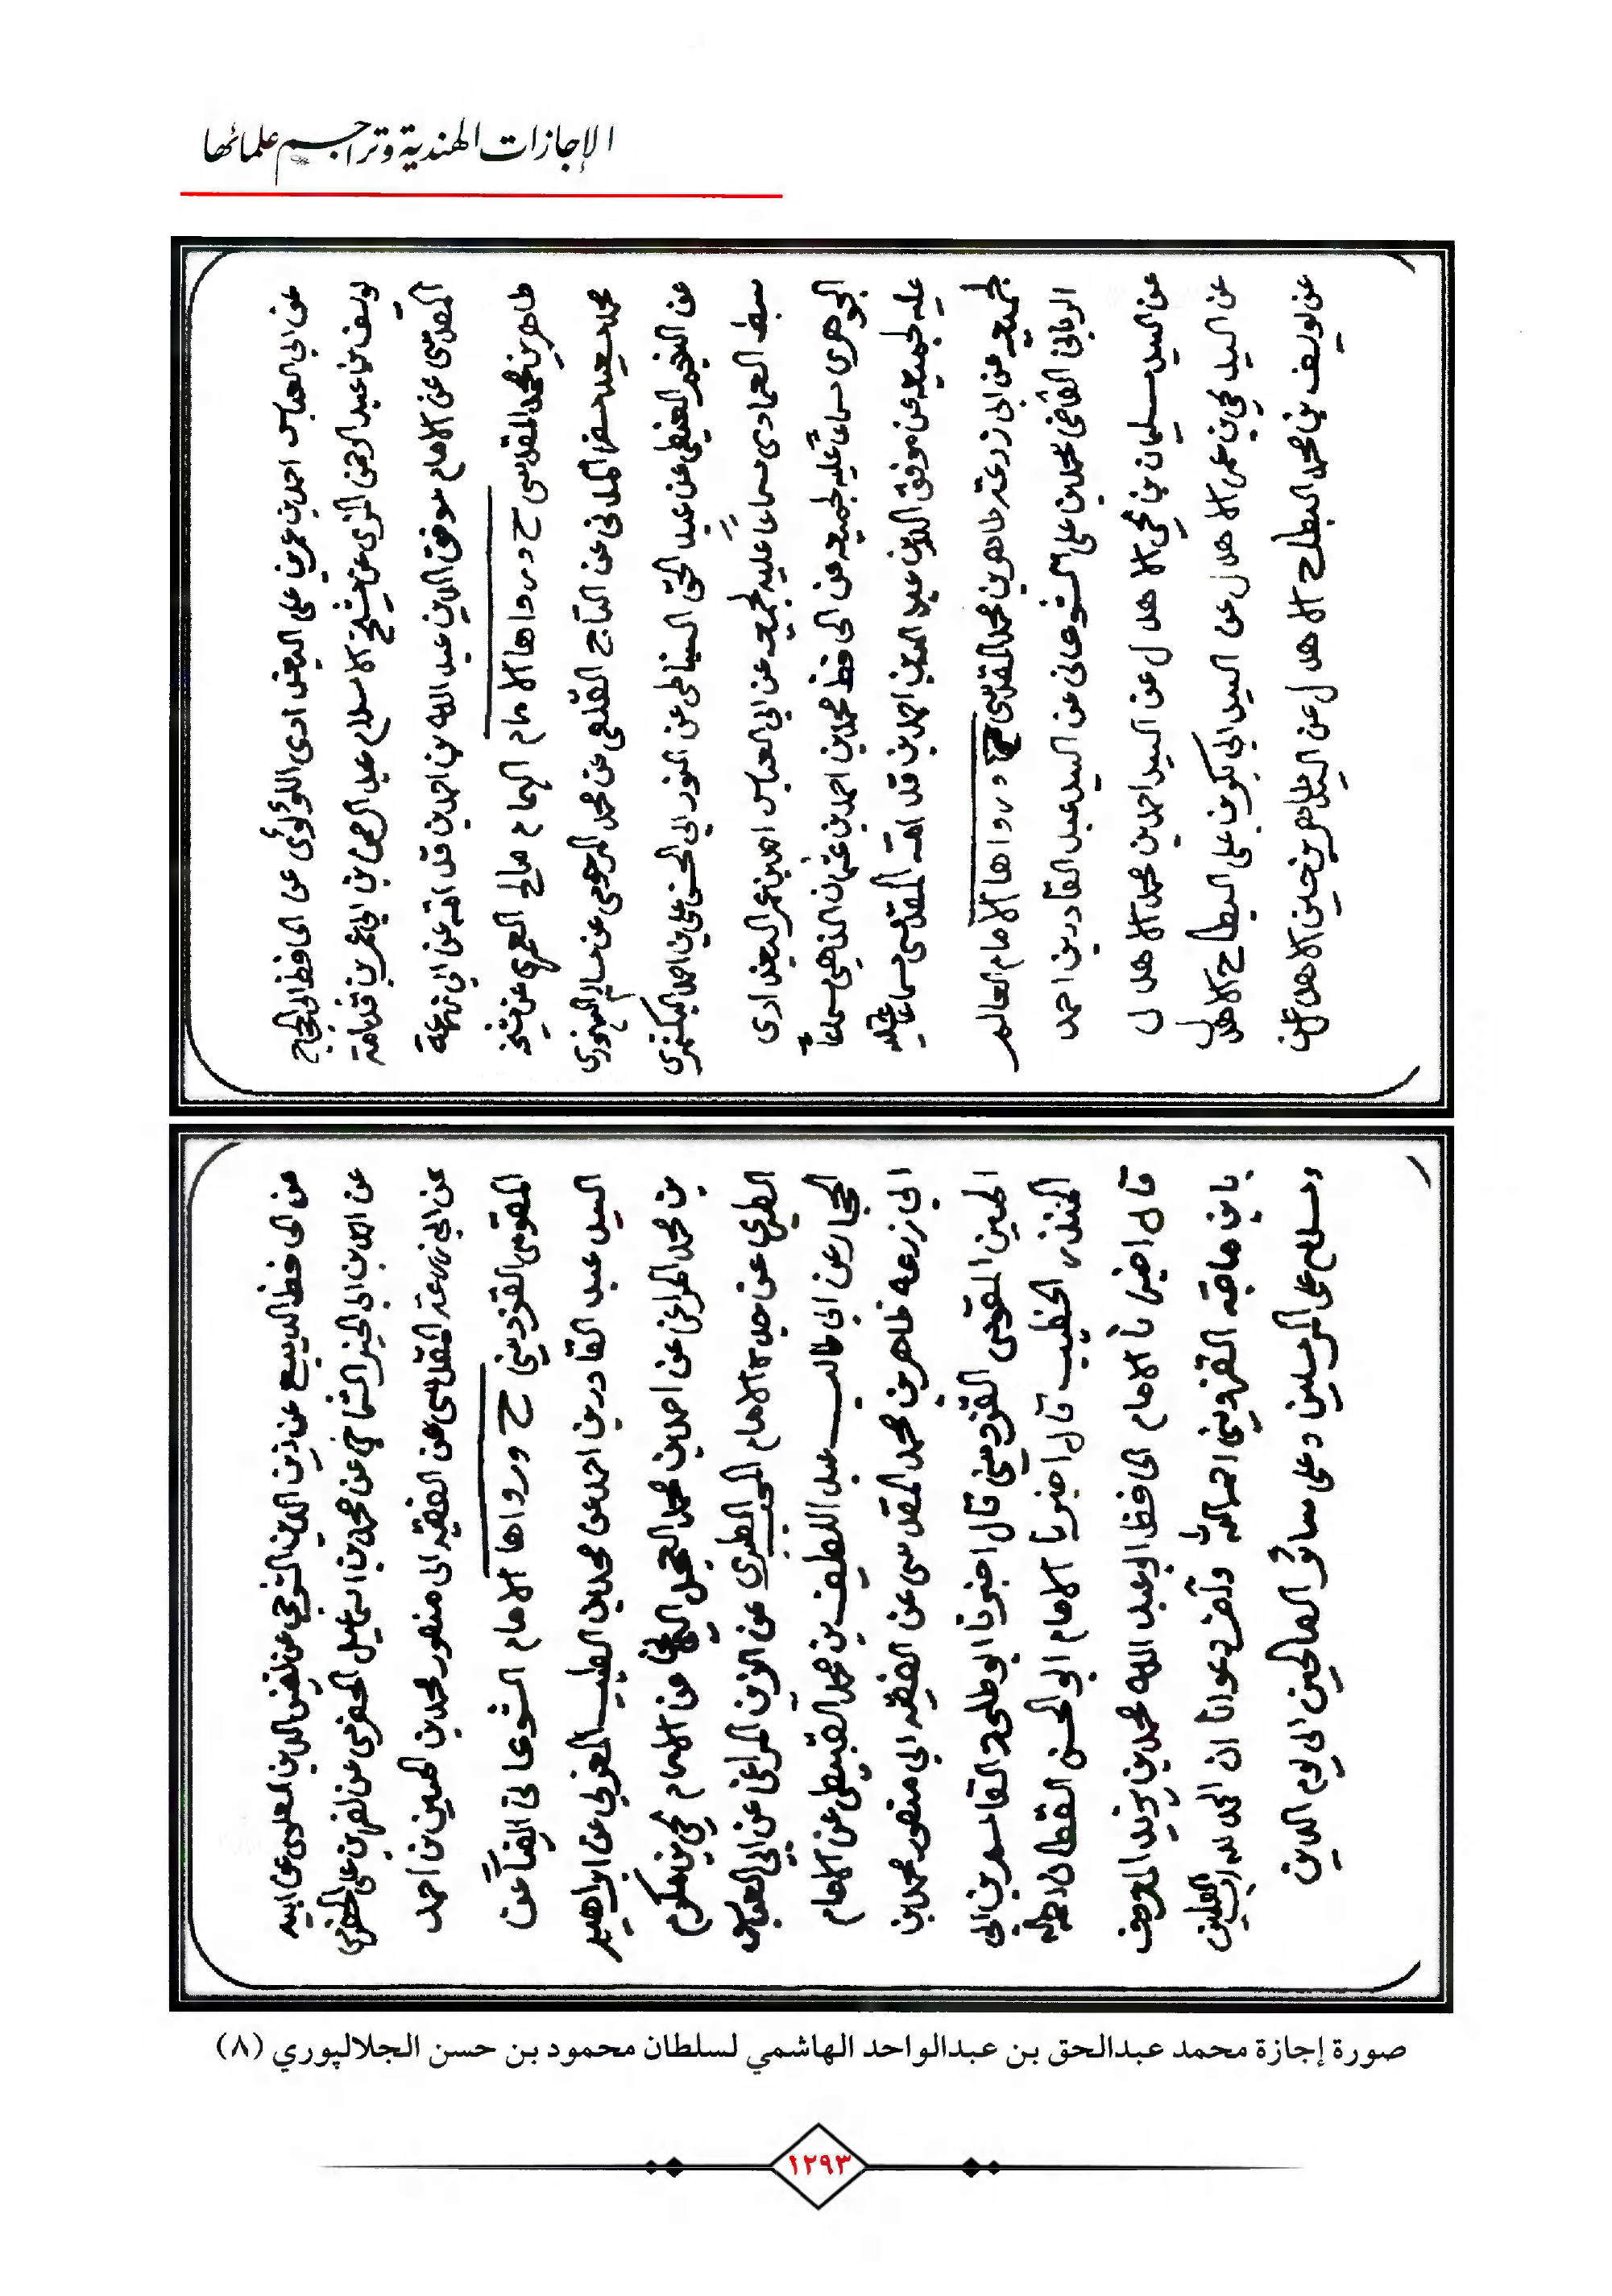 الإجازات الهندية وتراجم علمائها
عن ابي العباس احمد بن عمر بن علي البغدادي اللؤلؤي عن الحافظ ابي الحجاج
يوسف بن عبد الرحمن المزي عن شيخ الاسلام عبد الرحمن بن ابي عمر بن قدامة
المقدسي عن الامام موفق الدين عبد الله بن احمد بن قدامة عن ابي زرعة
طاهر بن محمد المقدسي ح ورواها الامام الهمام صالح العمري عن شيخه
محمد سعيد سفر المدني عن التاج القلعي عن محمد المرحومي عن سالم السنهوري
عن النجم الغيطي عن عبد الحق السنباطي عن النور ابي الحسن علي بن احمد البكتمري
سبط العمادي سماعا عليه لجميعه عن ابي العباس احمد بن عمر البغدادي
الجوهري سماعا عليه لجميعه عن الحافظ محمد بن احمد بن عثمان الذهبي سماعا
عليه لجميعه عن موفق الدين عبد الله بن احمد بن قدامة المقدسي سماعا عليه
لجميعه عن ابي زرعة طاهر بن محمد المقدسي ح ورواها الامام العالم
الرباني القاضي محمد بن علي الشوكاني عن السيد عبد القادر بن احمد
عن السيد سليمان بن يحي الاهدل عن السيد احمد بن محمد الاهدل
عن السيد يحي بن عمر الاهدل عن السيد ابي بكر بن علي البطاح الاهدل
عن يوسف بن محمد البطاح الاهدل عن السيد طاهر بن حسين الاهدل عن
عن الحافظ الديبع عن زين الدين الشرجي عن نفيس الدين العلوي عن ابيه
عن احمد بن ابي الخير الشماخي عن محمد بن اسماعيل الحضرمي عن نصر بن علي الحضرمي
عن ابي زرعة المقدسي عن الفقيه ابي منصور محمد بن الحسين بن احمد
المقومي القزويني ح ورواها الامام الشوكاني ايضاً عن
السيد عبد القادر بن احمد عن محمد بن الطيب المغربي عن ابراهيم
بن محمد الدرعي عن احمد بن محمد العجل اليمني عن الامام يحي بن مكرم
الطبري عن جده الامام المحب الطبري عن الزين المراغي عن ابي العباس
الحجار عن ابي طالب عبد اللطيف بن محمد القبيطي عن الامام
ابي زرعه طاهر بن محمد المقدسي عن الفقيه ابي منصور محمد بن
الحسين المقومي القزويني قال اخبرنا ابو طلحة القاسم بن ابي
المنذر الخطيب قال اخبرنا الامام ابو الحسن القطان
قال اخبرنا الامام الحافظ ابو عبد الله محمد بن يزيد المعروف
بابن ماجه القزويني رحمه الله وآخر دعوانا ان الحمد لله رب العلمين
وسلام على المرسلين وعلى سائر الصالحين الى يوم الدين
صورة إجازة محمد عبدالحق بن عبدالواحد الهاشمي لسلطان محمود بن حسن الجلالپوري (٨)
١٢٩٣